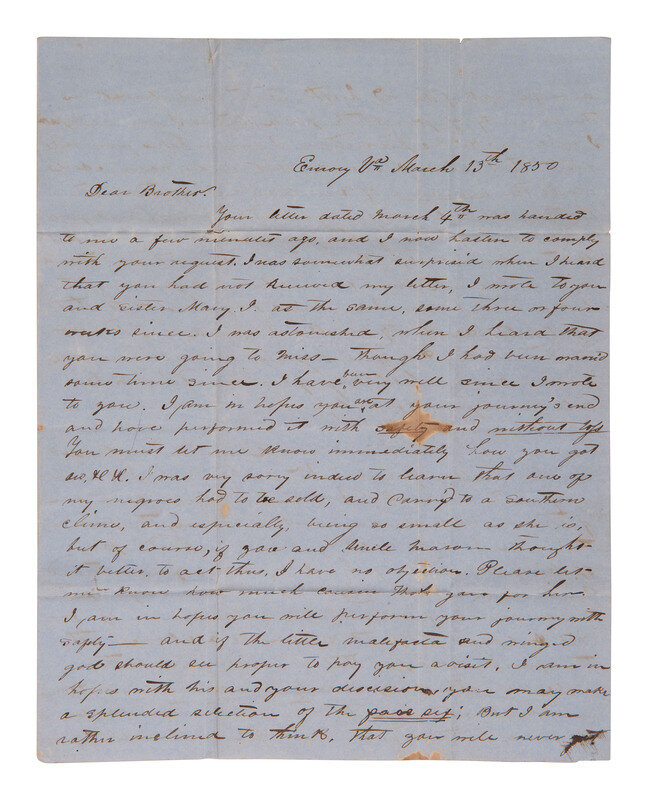 Emory Va March 13th 1850
Dear Brother.
Your letter dated March 4th was handed
to me a few minutes ago, and I now hasten to comply
with your request. I was somewhat surprised when I heard
that you had not received my letter, I wrote to you
and sister Mary J. at the same, some three or four
weeks since. I was astonished, when I heard that
you were going to Miss— though I had been
some time since. I have been very well since I wrote
to you. I am in hopes you are at your journey's end
and have performed it with safety and without
You must let me know immediately how you got
I was very sorry indeed to learn that one of
my negroes had to be sold, and carry to a southern
clime, and especially, being so small as she is,
but of course, if you and Uncle thought
it better to act thus, I have no objection. Please let
me know how much cousin you for her
I am in hopes you will perform your journey with
safty— and if the little and winged
god should see proper to pay you a visit, I am in
hopes with his and your you may make
a splendid selection of the ; But I am
rather inclined to think, that you will never